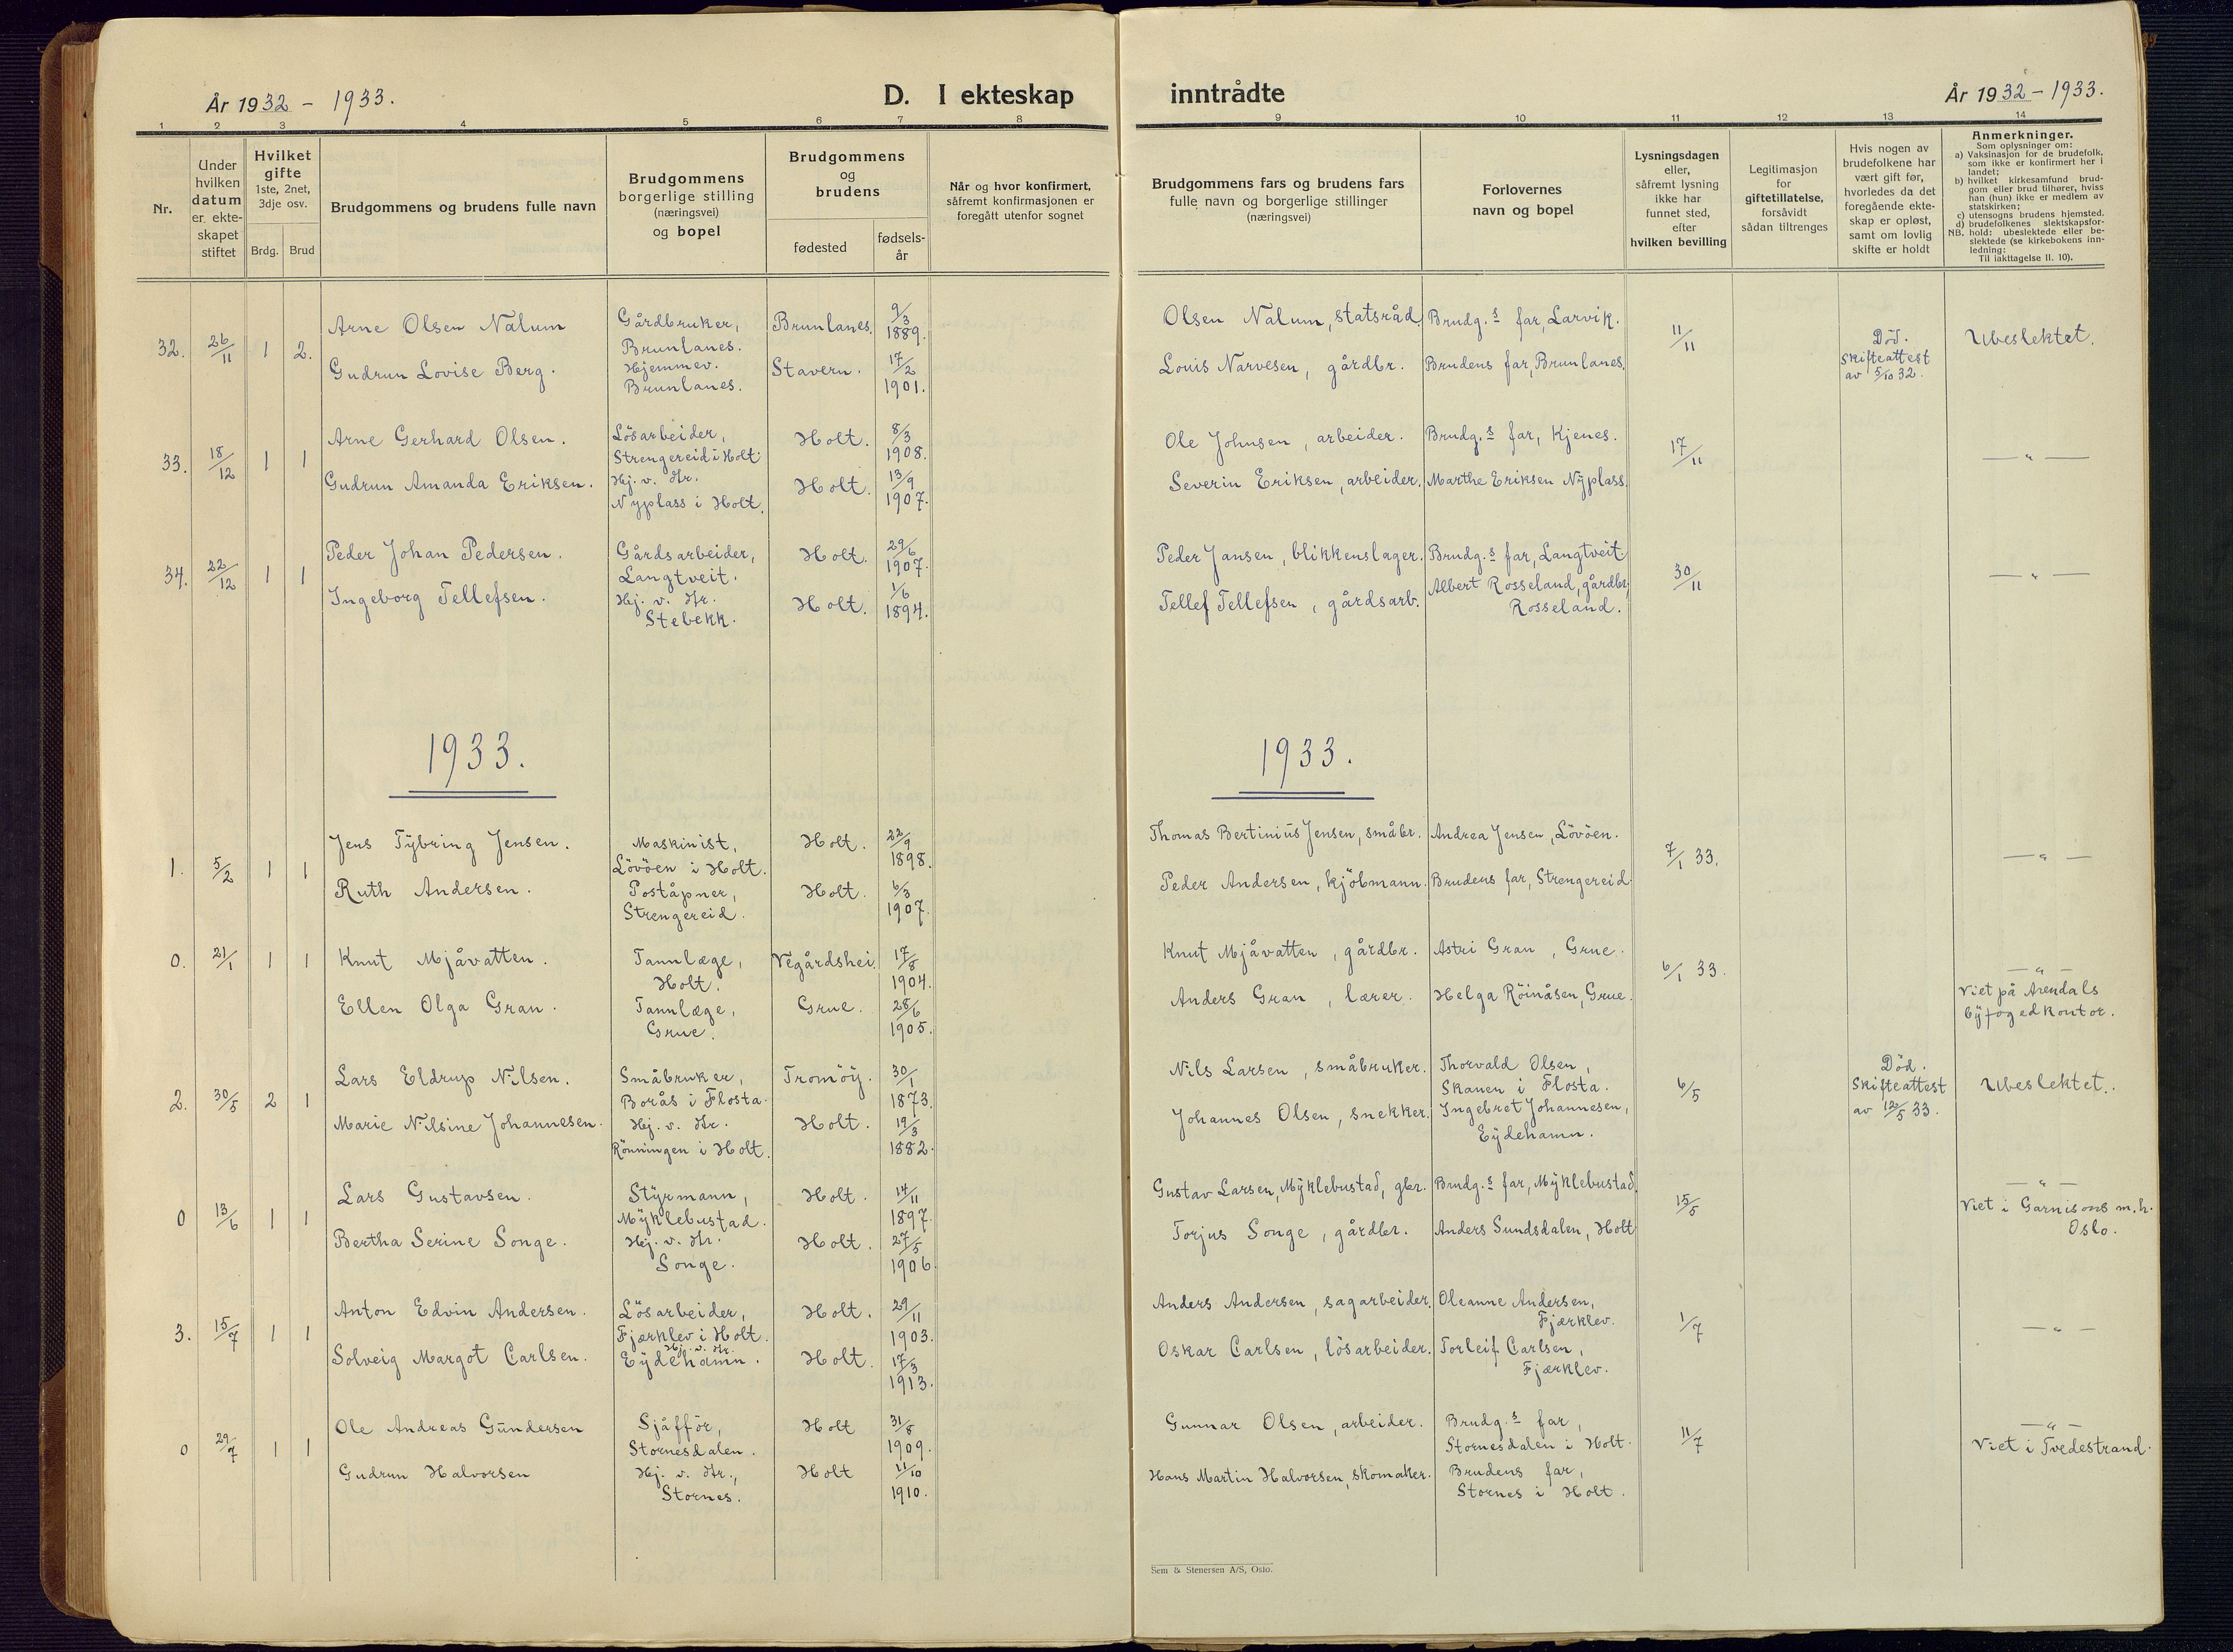 År 1932 – 1933.
D. I ekteskap
1 2 3 4 5 6 7 8
Nr.
Under hvilken datum er ekteskapet stiftet
Hvilket gifte 1ste, 2net, 3dje osv.
Brdg. Brud
Brudgommens og brudens fulle navn
Brudgommens borgerlige stilling (næringsvei) og bopel
Brudgommens og brudens
fødested
fødselsår
Når og hvor konfirmert, såfremt konfirmasjonen er foregått utenfor sognet
32. 26/11 1 2.
Arne Olsen Nalum
Gårdbruker, Brunlanes.
Brunlanes. 9/3 1889.
Gudrun Lovise Berg.
Hjemmev. Brunlanes.
Stavern. 17/2 1901.
33. 18/12 1 1
Arne Gerhard Olsen.
Lösarbeider, Strengereid i Holt.
Holt. 8/3 1908.
Gudrun Amanda Eriksen.
Hj. v. Str. Nyplass i Holt.
Holt. 13/9 1907.
34. 22/12 1 1
Peder Johan Pedersen.
Gårdsarbeider, Langtveit.
Holt. 29/6 1907.
Ingeborg Tellefsen.
Hj. v. Str. Stebekk.
Holt. 1/6 1894.
1933.
1. 5/2 1 1
Jens Tybring Jensen.
Maskinist, Lövöen i Holt.
Holt. 22/9 1898.
Ruth Andersen.
Poståpner, Strengereid.
Holt. 6/3 1907.
0. 21/1 1 1
Knut Mjåvatten.
Tannlæge, Holt.
Vegårdshei. 17/8 1904.
Ellen Olga Gran.
Tannlæge, Grue.
Grue. 28/6 1905.
2. 30/5 2 1
Lars Eldrup Nilsen.
Småbruker, Borås i Flosta.
Tromöy. 30/1 1873.
Marie Nilsine Johannesen.
Hj. v. Str. Rönningen i Holt.
Holt. 19/3 1882.
0 13/6 1 1
Lars Gustavsen.
Styrmann, Myklebustad.
Holt. 14/11 1897.
Bertha Serine Songe.
Hj. v. Str. Songe.
Holt. 27/5 1906.
3. 15/7 1 1
Anton Edvin Andersen.
Lösarbeider, Fjærklev i Holt.
Holt. 29/11 1903.
Solveig Margot Carlsen.
Hj. v. Str. Eydehamn.
Holt. 17/3 1913.
0 29/7 1 1
Ole Andreas Gundersen
Sjåffør, Stornesdalen.
Holt 31/8 1909.
Gudrun Halvorsen
Hj. v. Str., Stornes.
Holt 11/10 1910.
inntrådte
År 1932 – 1933.
9 10 11 12 13 14
Brudgommens fars og brudens fars fulle navn og borgerlige stillinger (næringsvei)
Forlovernes navn og bopel
Lysningsdagen eller, såfremt lysning ikke har funnet sted, efter hvilken bevilling
Legitimasjon for giftetillatelse, forsåvidt sådan tiltrenges
Hvis nogen av brudefolkene har vært gift før, hvorledes da det foregående ekteskap er opløst, samt om lovlig skifte er holdt
Anmerkninger.
Som oplysninger om:
a) Vaksinasjon for de brudefolk, som ikke er konfirmert her i landet;
b) hvilket kirkesamfund brudgom eller brud tilhører, hviss han (hun) ikke er medlem av statskirken;
c) utensogns brudens hjemsted.
d) brudefolkenes slektskapsforhold: ubeslektede eller beslektede (se kirkebokens innledning:
NB.
Til iakttagelse II. 10).
Olsen Nalum, statsråd.
Brudg.s far, Larvik.
11/11
Död. Skifteattest av 5/10 32.
Ubeslektet.
Louis Narvesen, gårdbr.
Brudens far, Brunlanes.
Ole Johnsen, arbeider.
Brudg.s far, Kjenes.
17/11
— „ —
Severin Eriksen, arbeider.
Marthe Eriksen Nyplass.
Peder Jansen, blikkenslager.
Brudg.s far, Langtveit
30/11
— „ —
Tellef Tellefsen, gårdsarb.
Albert Rosseland, gårdbr, Rosseland.
1933.
Thomas Bertinius Jensen, småbr.
Andrea Jensen, Lövöen.
7/1 33.
— „ —
Peder Andersen, kjöbmann.
Brudens far, Strengereid.
Knut Mjåvatten, gårdbr.
Astri Gran, Grue.
6/1 33.
— „ —
Viet på Arendals byfogedkontor.
Anders Gran, lærer.
Helga Röinåsen, Grue.
Nils Larsen, småbruker.
Thorvald Olsen, Skanen i Flosta.
6/5
Död. Skifteattest av 12/5 33.
Ubeslektet.
Johannes Olsen, snekker.
Ingebret Johannesen, Eydehamn.
Gustav Larsen, Myklebustad, gbr.
Brudg.s far, Myklebustad.
15/5
— „ —
Viet i Garnisons m.h. Oslo.
Torjus Songe, gårdbr.
Anders Sundsdalen, Holt
Anders Andersen, sagarbeider.
Oleanne Andersen, Fjærklev.
1/7
— „ —
Oskar Carlsen, lösarbeider.
Torleif Carlsen, Fjærklev.
Gunnar Olsen, arbeider.
Brudg.s far, Stornesdalen i Holt.
11/7
— „ —
Viet i Tvedestrand.
Hans Martin Halvorsen, skomaker.
Brudens far, Stornes i Holt.
Sem & Stenersen A/S, Oslo.